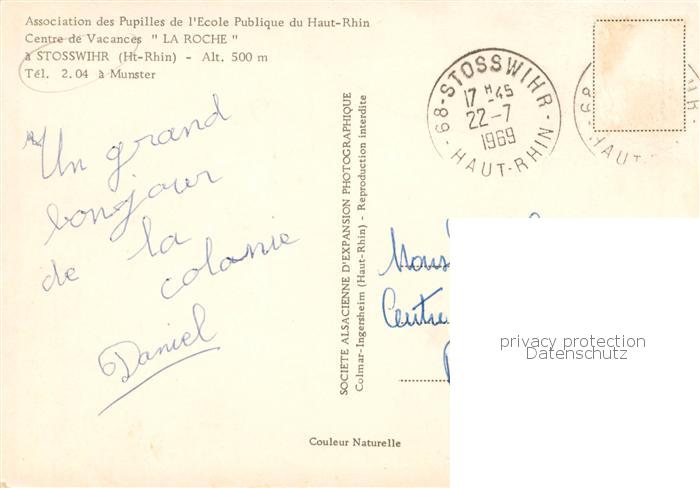 Association des Pupilles de l'Ecole Publique du Haut-Rhin
Centre de Vacances " LA ROCHE "
à STOSSWIHR (Ht-Rhin) - Alt. 500 m
Tél. 2.04 à Munster
Un grand
bonjour
de la
colonie
Daniel
SOCIETE ALSACIENNE D'EXPANSION PHOTOGRAPHIQUE
Colmar-Ingersheim (Haut-Rhin) - Reproduction interdite
68-STOSSWIHR-
17 H-45
22-7
1969
HAUT-RHIN
68
HAUT-
Centre
privacy protection
Datenschutz
Couleur Naturelle